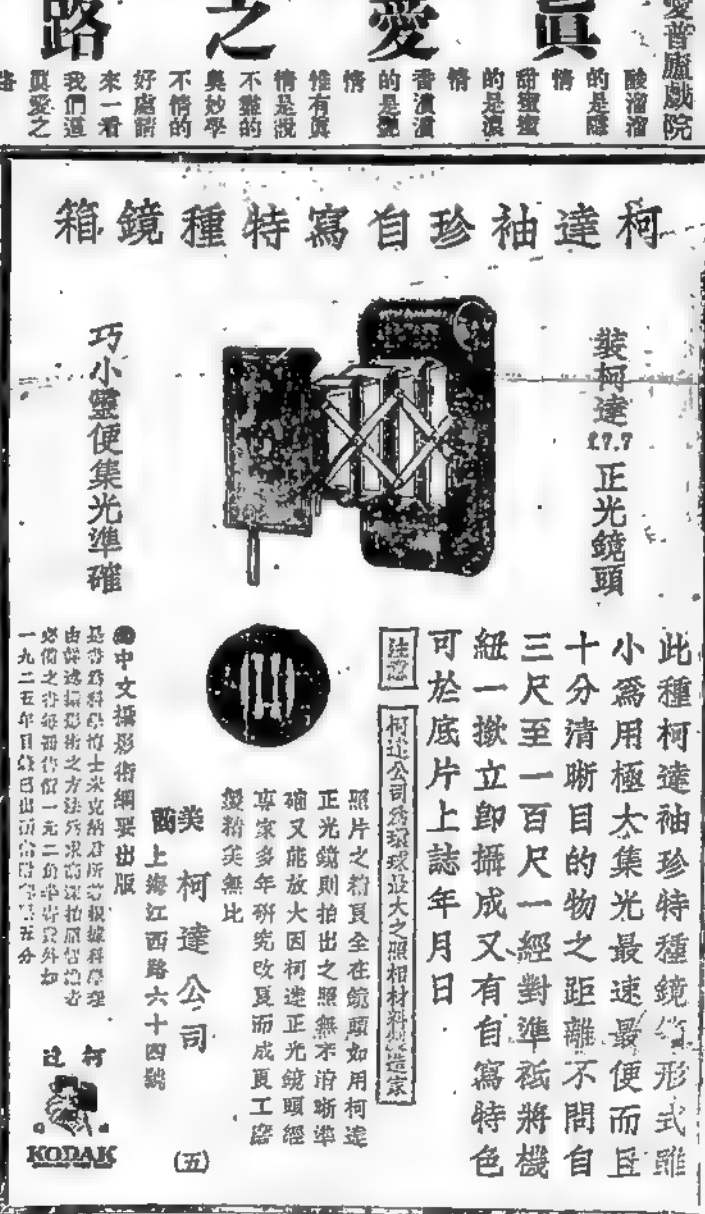 愛普廬戲院
真愛之路
酸溜溜
的是醋
情
甜蜜蜜
的是滾
情
香濃濃
的是豔
情
惟有真
情是說
不盡的
奧妙學
不情的
好處請
來一看
我們這
真愛之
路
柯達袖珍自寫特種鏡箱
裝柯達 f.7.7 正光鏡頭
巧小靈便集光準確
此種柯達袖珍特種鏡箱形式雖
小為用極大集光最速最便而且
十分清晰目的物之距離不問自
三尺至一百尺一經對準祗將機
紐一撳立卽攝成又有自寫特色
可於底片上誌年月日
注意
柯達公司為環球最大之照相材料製造家
照片之精良全在鏡頭如用柯達
正光鏡則拍出之照無不清晰準
確又能放大因柯達正光鏡頭經
專家多年硏究改良而成良工磨
製精美無比
美國 柯達公司
上海江西路六十四號
中文攝影術綱要出版
是書為科學博士米克納君所著根據科學理
由詳述攝影術之方法為求高深拍照經驗者
必備之書每冊售價一元二角半寄費外加
一九二五年目錄已出
五分
柯達
KODAK
(五)